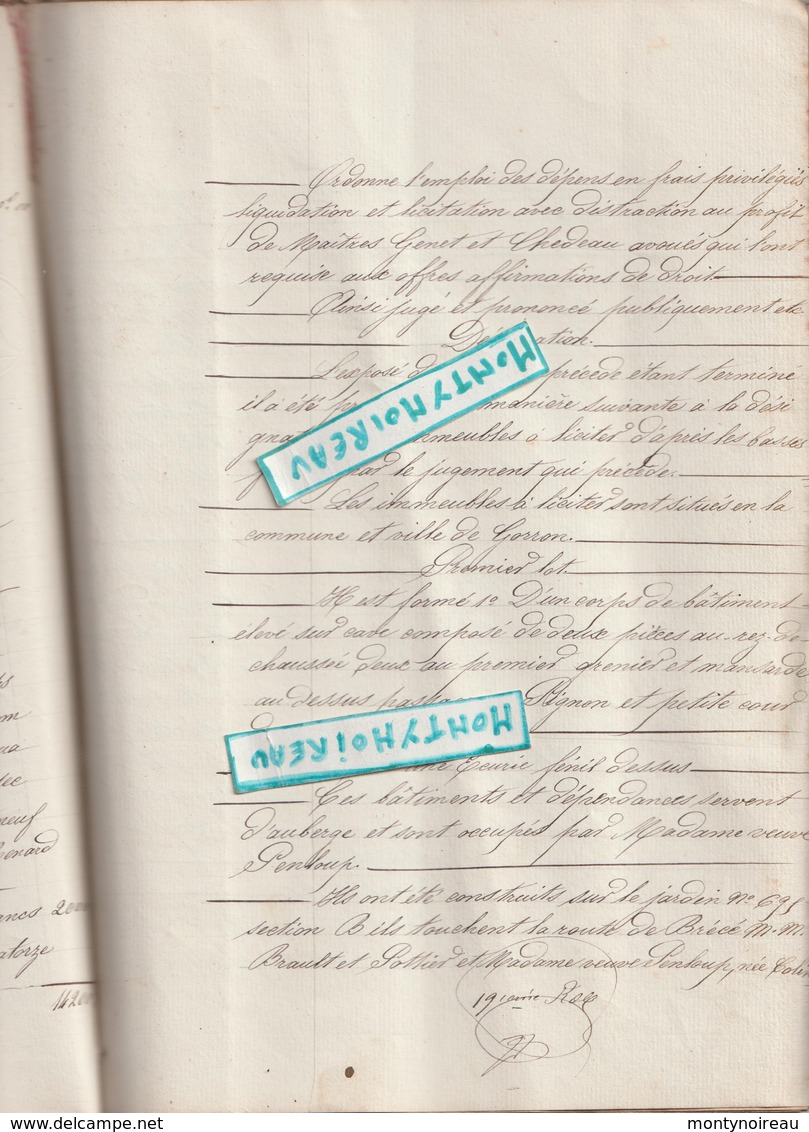 Ordonne l'emploi des dépens en frais privilégiés
liquidation et licitation avec distraction au profit
de Maîtres Genet et Chedeau avoués qui l'ont
requise aux offres affirmations de droit.
Ainsi jugé et prononcé publiquement etc
Dé ation.
L'exposé d précède étant terminé
il a été pr manière suivante à la dési
gnat meubles à liciter d'après les basses
f par le jugement qui précède.
Les immeubles à liciter sont situés en la
commune et ville de Gorron.
Premier lot
Il est formé 1º D'un corps de bâtiment
élevé sur cave composé de deux pièces au rez-de-
chaussée deux au premier grenier et mansarde
au dessus pas Pignon et petite cour
une Ecurie fénil dessus
Ces bâtiments et dépendances servent
d'auberge et sont occupés par Madame veuve
Penloup.
Ils ont été construits sur le jardin Nº 695
section B ils touchent la route de Brécé M.M.
Brault et Pottier et Madame veuve Penloup, née Colin
19ième Rôle
MONTYNOIREAU
MONTYNOIREAU
neuf
henard
ancs 2000
atorze
14200
delcampe.net
montynoireau